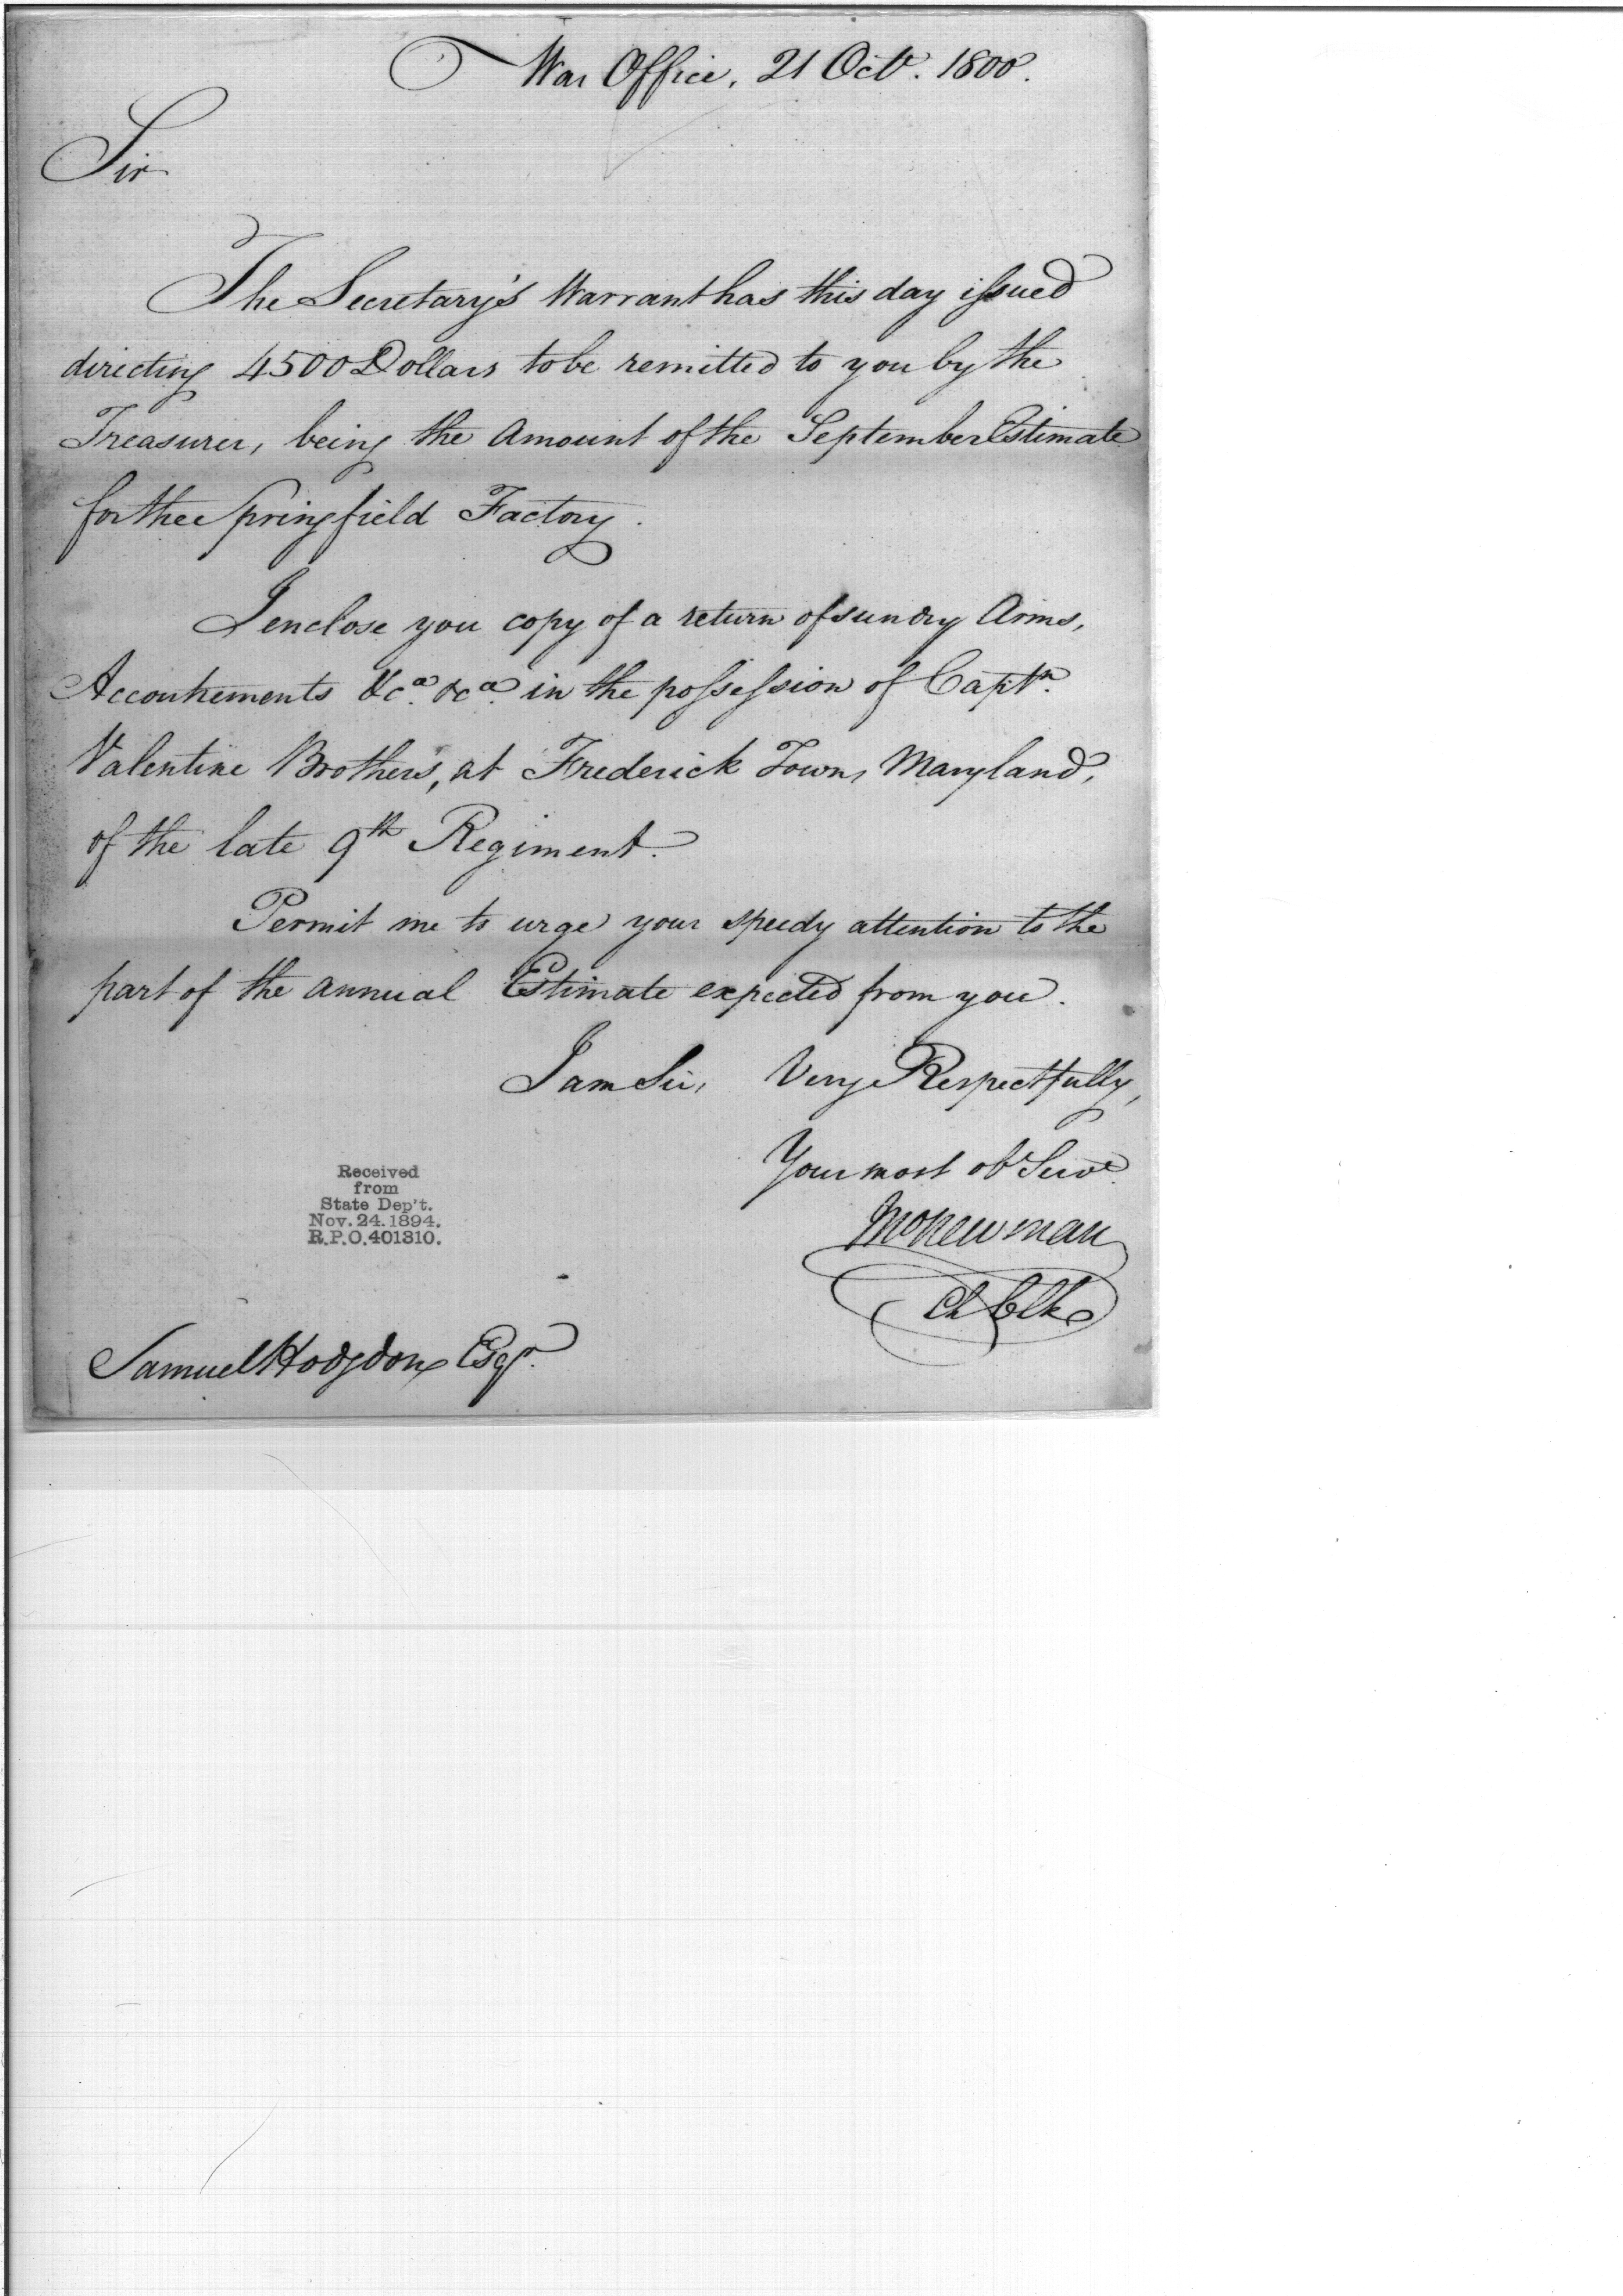 War Office, 21 Octr. 1800.
Sir
The Secretary's Warrant has this day issued
directing 4500 Dollars to be remitted to you by the
Treasurer, being the Amount of the September Estimate
for the Springfield Factory.
I enclose you copy of a return of sundry Arms,
Accoutrements &ca. &ca. in the possession of Captn.
Valentine Brothers, at Frederick Town, Maryland,
of the late 9th Regiment.
Permit me to urge your speedy attention to the
part of the annual Estimate expected from you.
I am Sir, Very Respectfully,
Your most obt Servt.
Received
from
State Dep't.
Nov. 24. 1894.
R.P.O. 401310.
Newman
Ch Clk
Samuel Hodgdon Esqr.